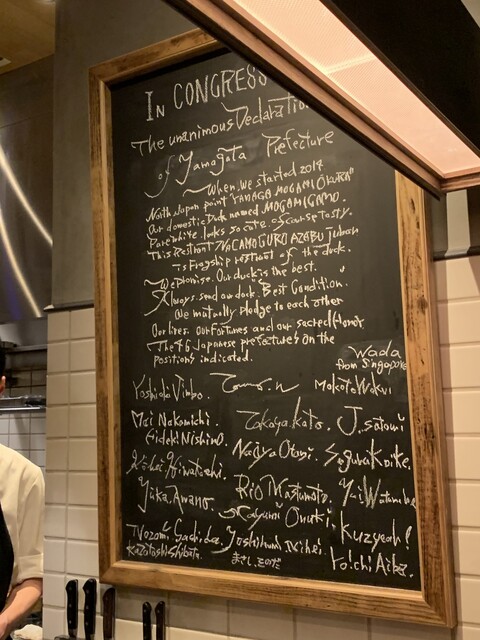 IN CONGRESS
The unanimous Declaration
of Yamagata Prefecture
When we started 2014
North Japan point "YAMAGA MOGAMI ŌKURA"
Our domestic Duck named MOGAMIGAMO.
Pure white. looks so cute. of course Tasty.
This Restrant MAGAMOGURO AZABU Juban
is Fragship restrunt of the duck.
We Promise. Our duck is the best.
Always send our duck "Best Condition".
We mutually pledge to each other
Our lives. our Fortunes and our sacred Honor
The 46 Japanese prefectures on the
positions indicated.
Wada
from Singapore
Yoshida Jimbo. Makoto Wakui
Mai Nakamichi. Takaya Kato. J. satoui
Hideki Nishino. Naoya Otani. Koike.
Yuka. Amano. Rio Matsumoto. Yui Watanabe
Mayumi Onuki. Kuzyeah!
Nozomi Yoshifumi
Kazotoshi Shibata. まさし、そのだ Yo!chi Aiba.